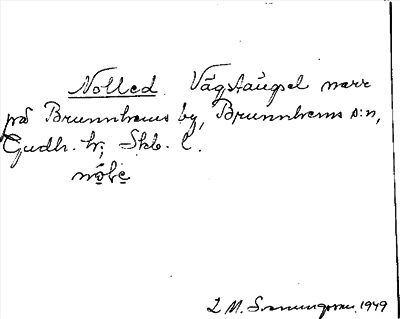 Nolled Vägstängsel norr
på Brunnhems by, Brunnhems s:n,
Gudh. hr; Skb. l.
L M. Svenungsson, 1949